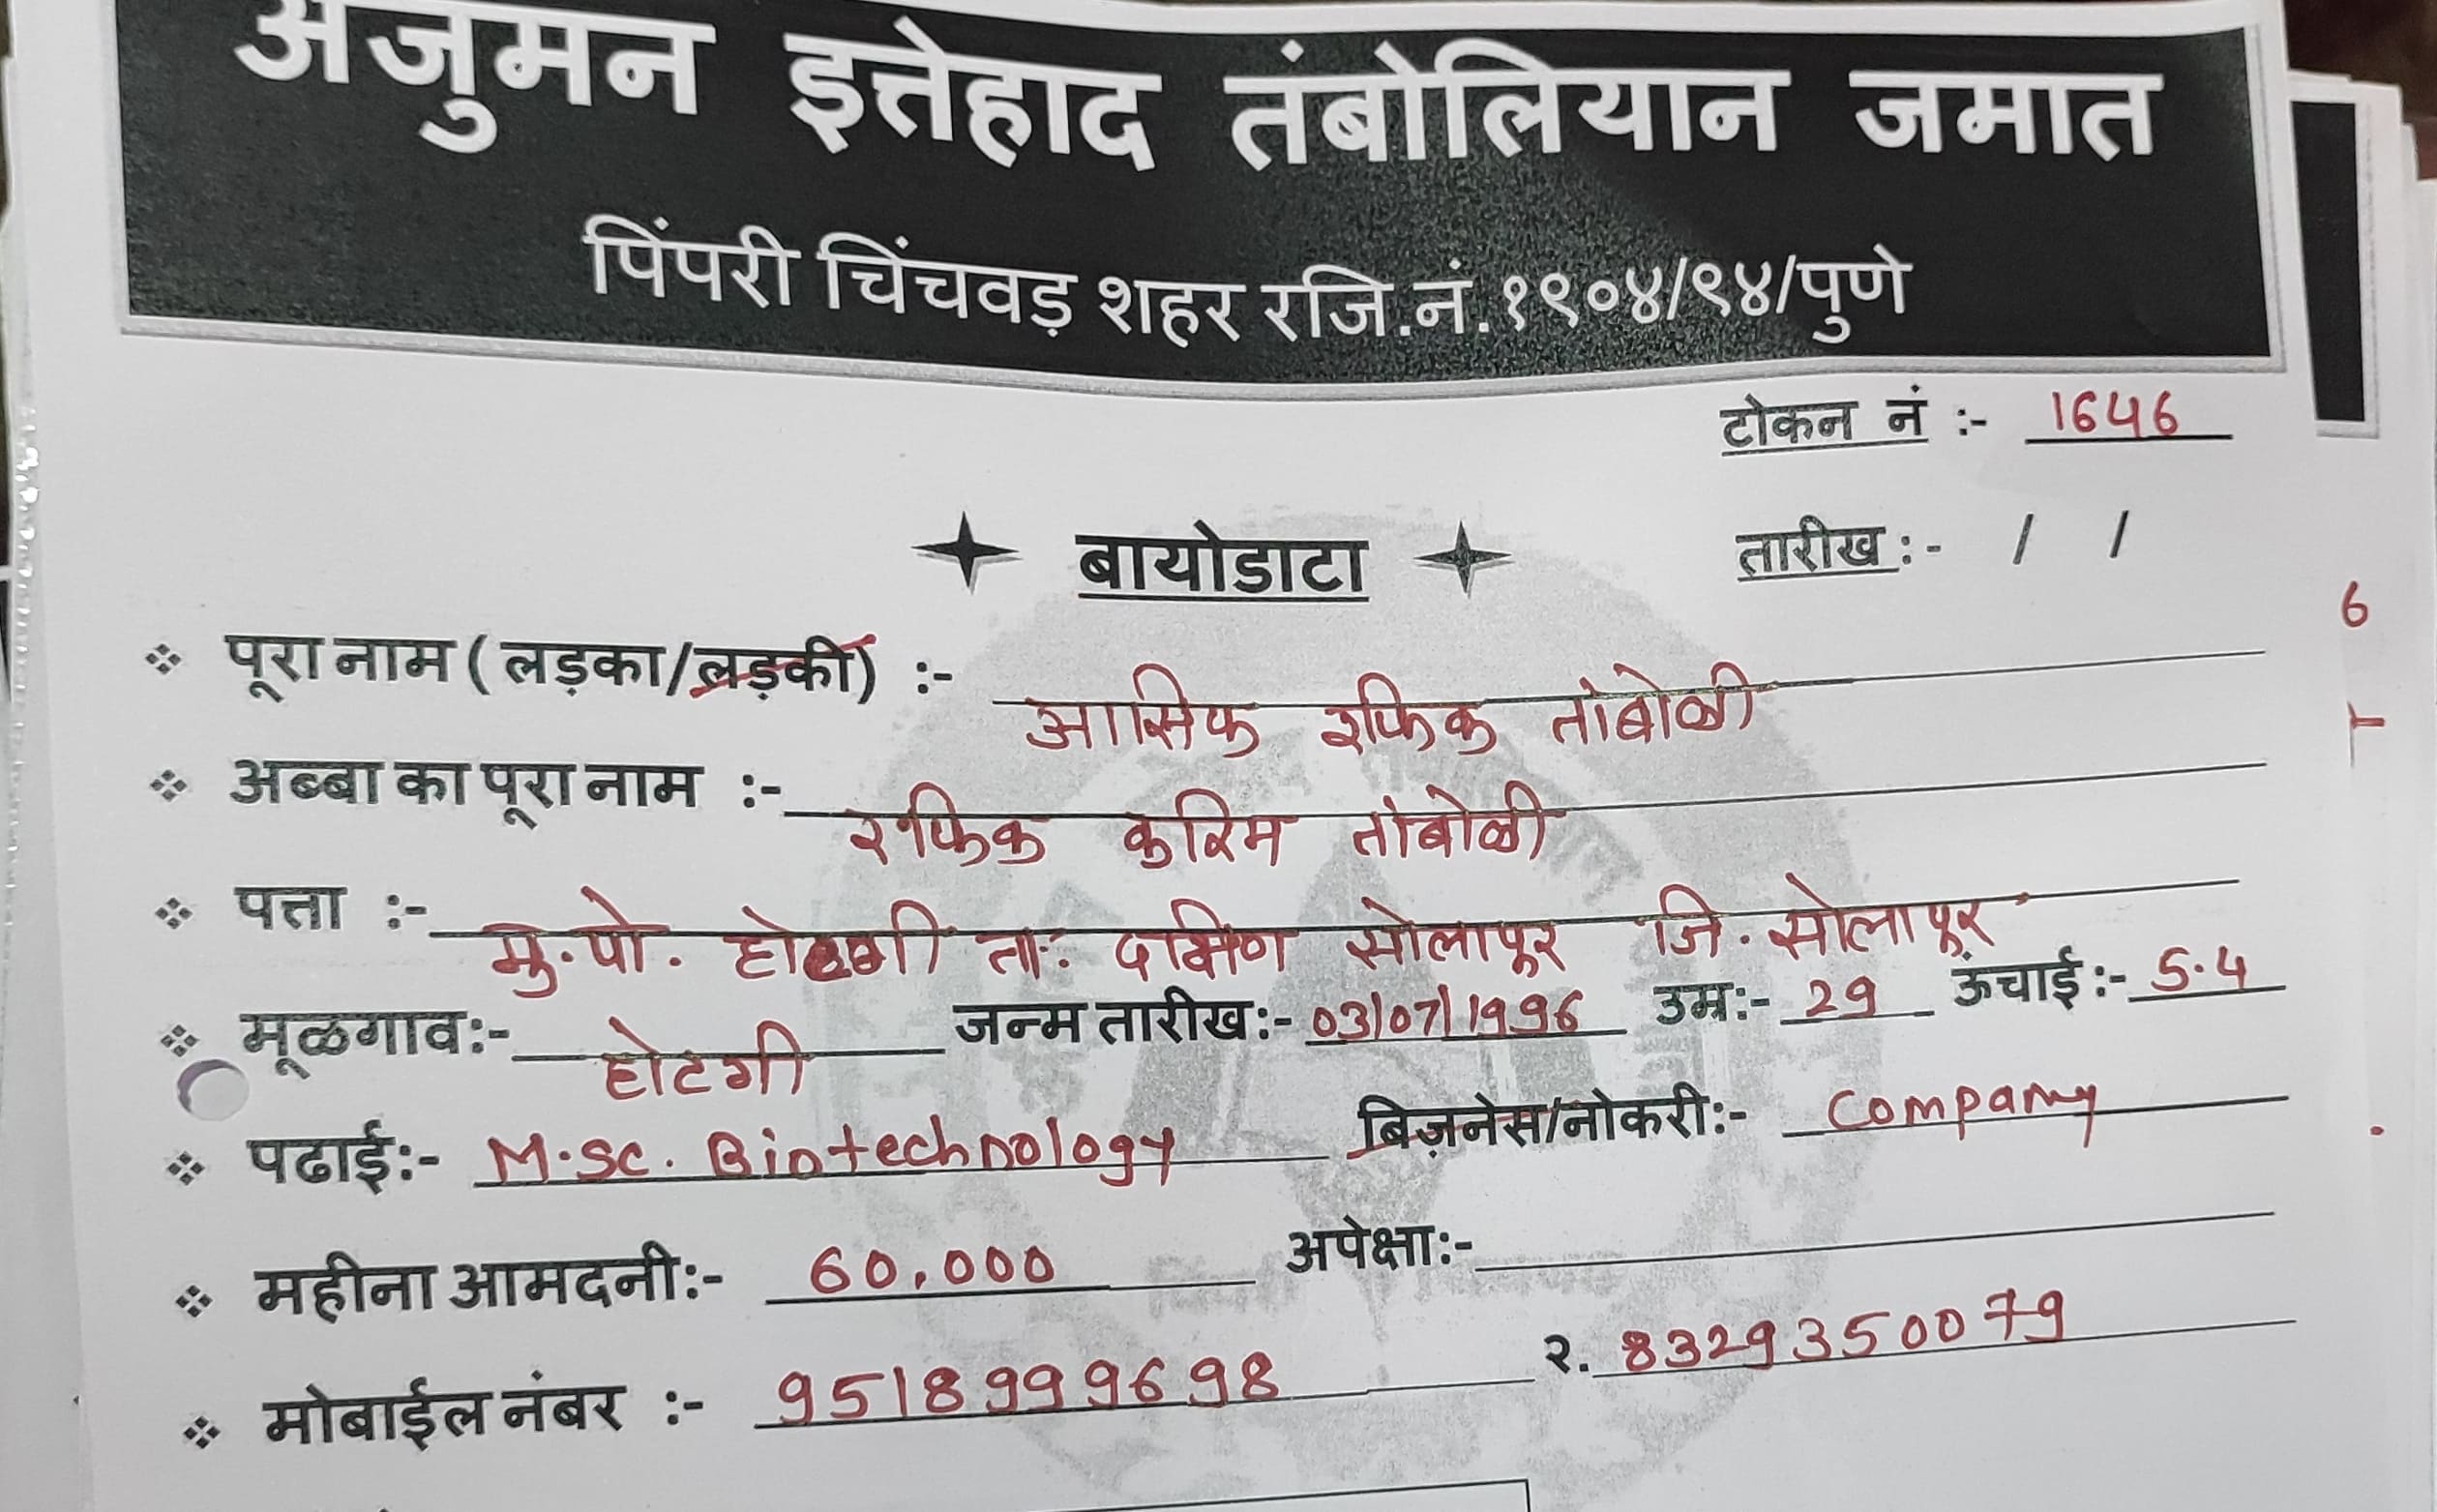 अंजुमन इत्तेहाद तंबोलियान जमात
पिंपरी चिंचवड़ शहर रजि.नं.१९०४/९४/पुणे
टोकन नं :- 1646
बायोडाटा
तारीख :- / /
6
पूरा नाम ( लड़का/लड़की) :- आसिफ रफिक तांबोळी
अब्बा का पूरा नाम :- रफिक करिम तांबोळी
पत्ता :- मु.पो. होटगी ता: दक्षिण सोलापूर जि. सोलापूर
मूळगाव:- होटगी जन्म तारीख:- 03/07/1996 उम्र:- 29 ऊंचाई:- 5.4
पढाई:- M.SC. Biotechnology बिज़नेस/नोकरी:- Company
महीना आमदनी:- 60,000 अपेक्षा:-
मोबाईल नंबर :- 9518999698 २. 8329350079